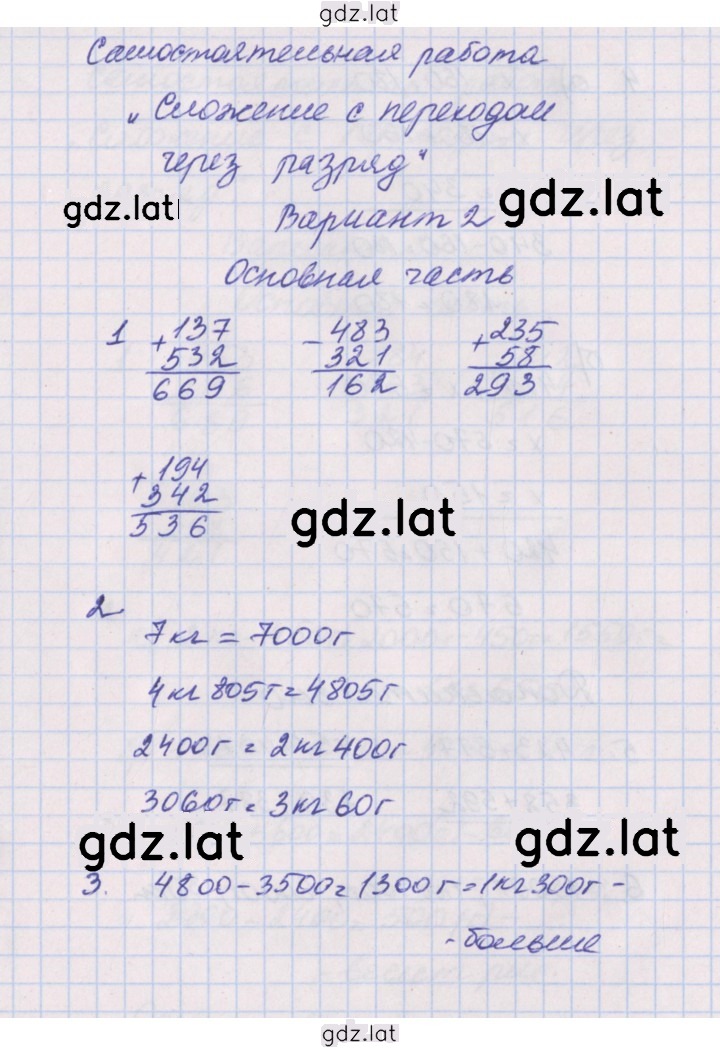 gdz.lat
Самостоятельная работа
„Сложение с переходом
через разряд“
gdz.lat
gdz.lat
Вариант 2
Основная часть
1 +137 -483 +235
532 321 58
669 162 293
+194
342
536
gdz.lat
2
7кг = 7000г
4кг 805г = 4805г
2400г = 2кг 400г
3060г = 3кг 60г
gdz.lat
gdz.lat
3. 4800-3500=1300г=1кг300г -
- больше
gdz.lat